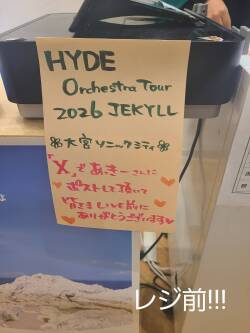 HYDE
Orchestra Tour
2026 JEKYLL
大宮ソニックシティ
"X"であきーさんに
ポストして頂いて
ありがとうございます
レジ前!!!